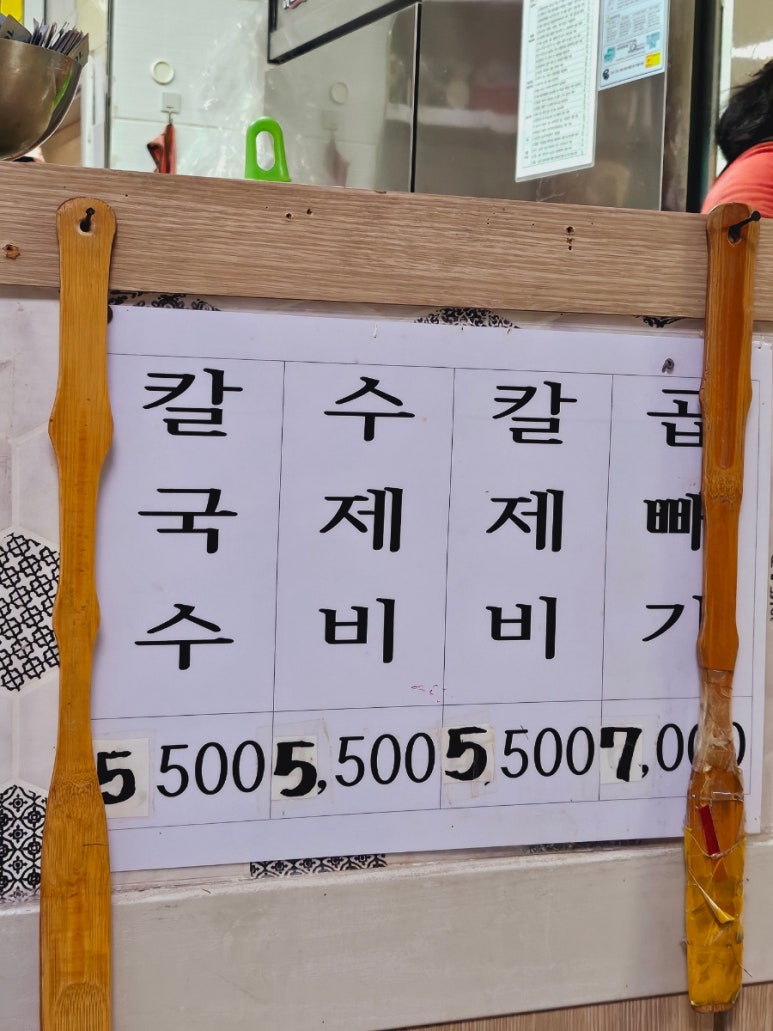 칼국수
수제비
칼제비
곱빼기
5 500
5,500
5 500
7,00